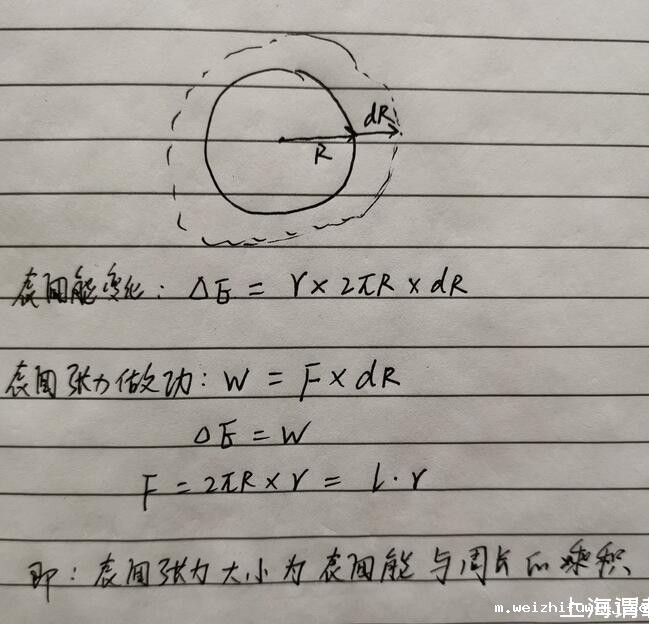 dR
R
表面能变化: ΔE = γ × 2πR × dR
表面张力做功: W = F × dR
ΔE = W
F = 2πR × γ = l · γ
即: 表面张力大小为表面能与周长的乘积
上海谓载